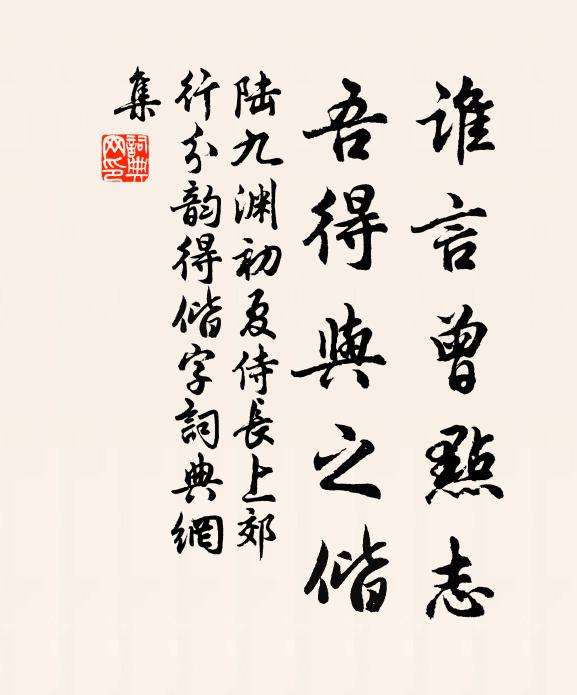 誰言曾點志
吾得與之偕
陸九淵初夏侍長上郊
行分韵得偕字詞典網
集
詞典
网印